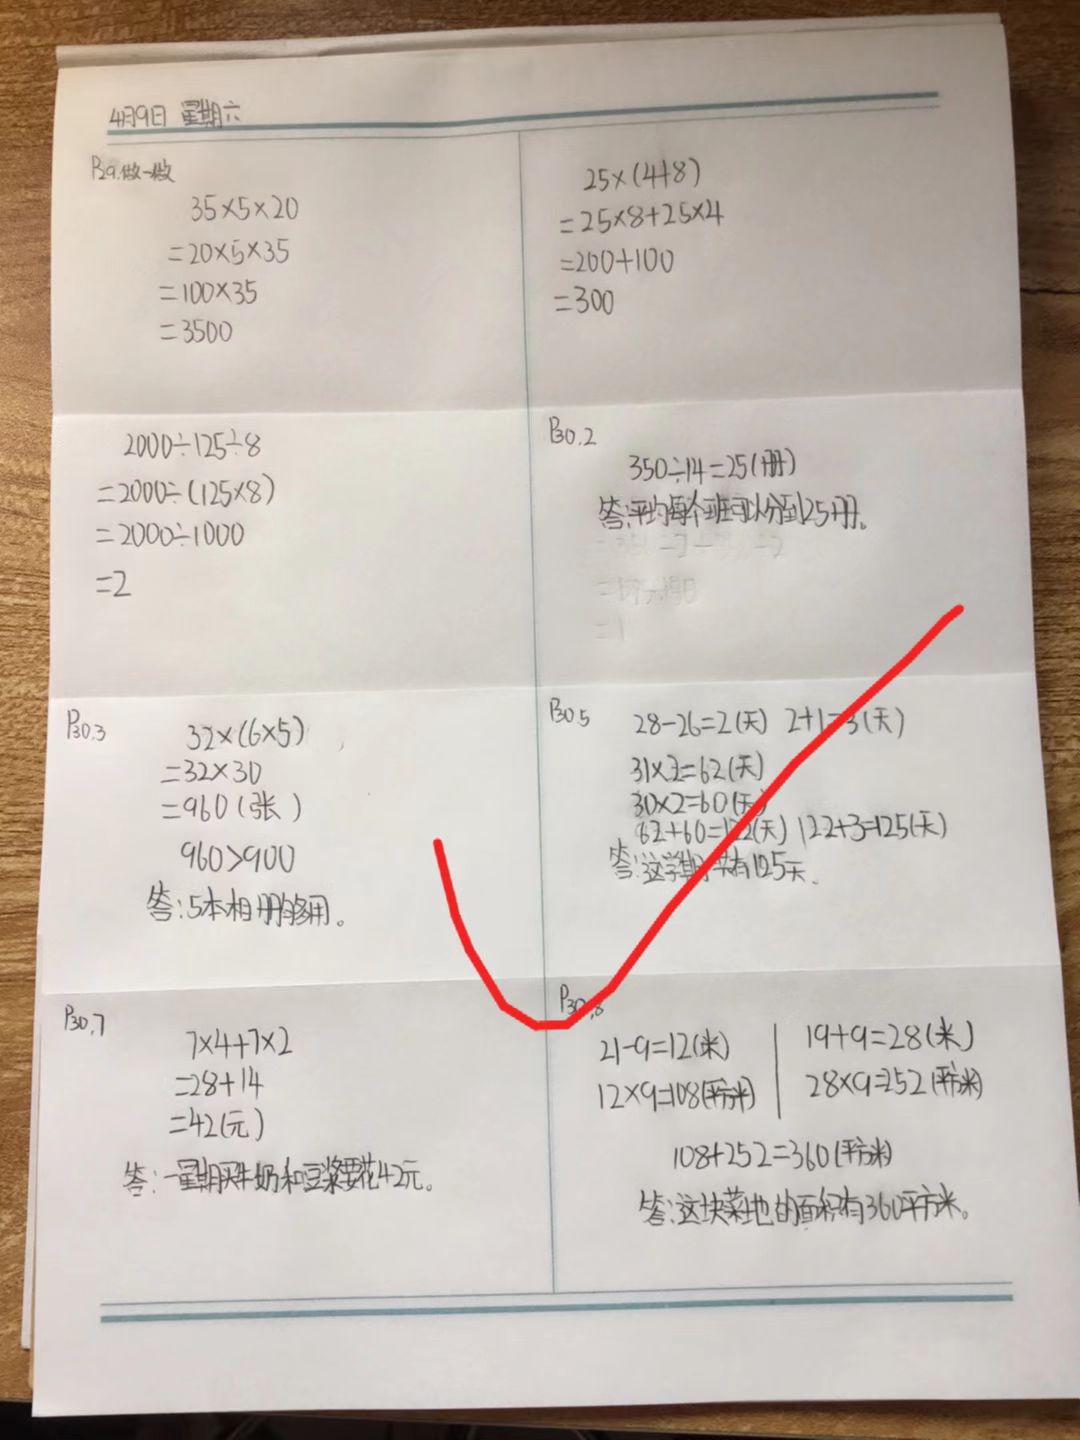 4月9日 星期六
P29.做一做
35×5×20
=20×5×35
=100×35
=3500
25×(4+8)
=25×8+25×4
=200+100
=300
2000÷125÷8
=2000÷(125×8)
=2000÷1000
=2
P30.2
350÷14=25(册)
答:平均每个班可以分到25册。
P30.3
32×(6×5)
=32×30
=960(张)
960>900
答:5本相册够用。
P30.5
28-26=2(天) 2+1=3(天)
31×2=62(天)
30×2=60(天)
62+60=122(天) 122+3=125(天)
答:这学期共有125天.
P30.7
7×4+7×2
=28+14
=42(元)
答:一星期买牛奶和豆浆要花42元。
P30.8
21-9=12(米)
12×9=108(平方米)
19+9=28(米)
28×9=252(平方米)
108+252=360(平方米)
答:这块菜地的面积有360平方米。